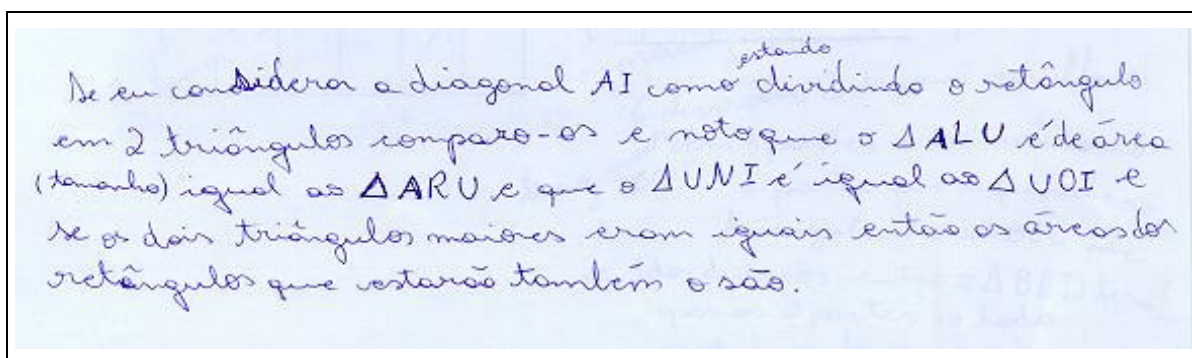 estando
Se eu considerar a diagonal AI como dividindo o retângulo
em 2 triângulos comparo-os e noto que o Δ ALU é de área
(tamanho) igual ao Δ ARU e que o Δ UNI é igual ao Δ UOI e
se os dois triângulos maiores eram iguais então as áreas dos
retângulos que estarão também o são.